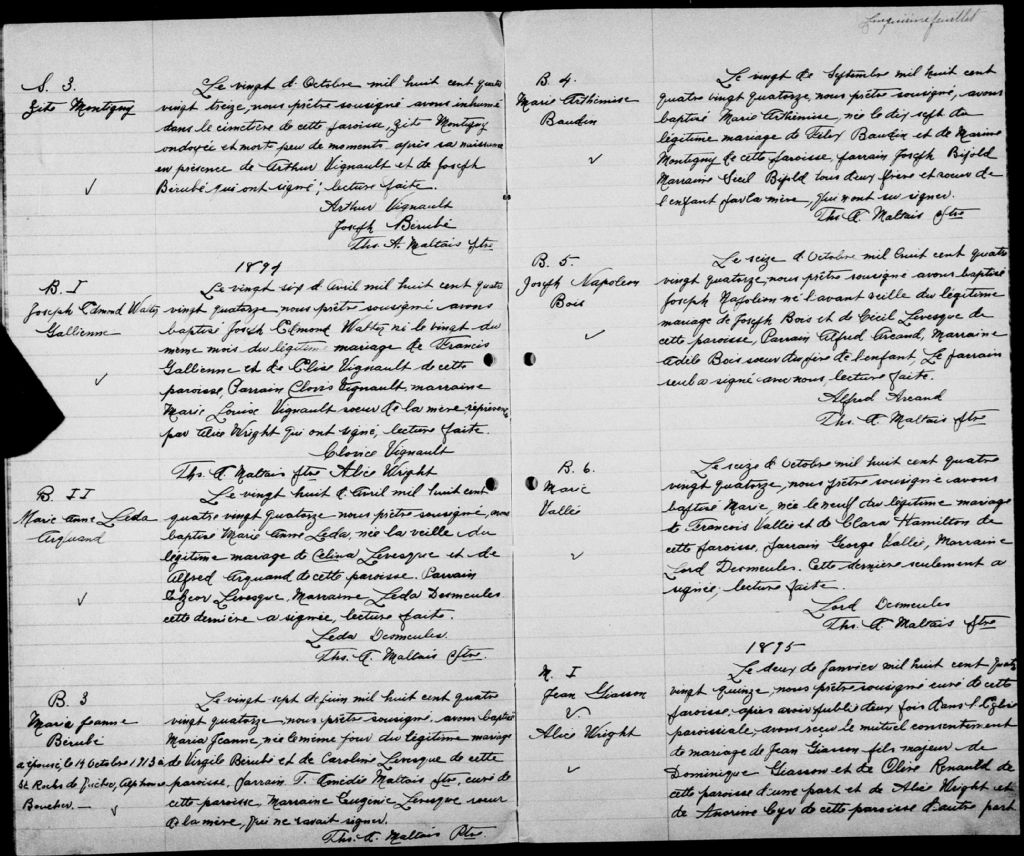 S. 3.
Zite Montigny
Le vingt d'Octobre mil huit cent quatre
vingt treize, nous prêtre sousigné avons inhumé
dans le cimetière de cette paroisse, Zite Montigny
ondoyée et morte peu de moments après sa naissance
en présence de Arthur Vignault et de Joseph
Bérubé qui ont signé; lecture faite.
Arthur Vignault
Joseph Bérubé
Ths. A. Maltais ptre
1894
B. I
Joseph Edmond Watty
Gallienne
Le vingt six d'Avril mil huit cent quatre
vingt quatorze, nous prêtre sousigné avons
baptisé Joseph Edmond Watty né le vingt du
même mois du légitime mariage de Francis
Gallienne et de Elise Vignault de cette
paroisse, Parrain Clovis Vignault, marraine
Marie Louise Vignault soeur de la mère, représentée
par Alice Wright qui ont signé, lecture faite.
Clovice Vignault
Ths. A Maltais ptre Alice Wright
B. II
Marie Anne Leda
Arquand
Le vingt huit d'Avril mil huit cent
quatre vingt quatorze nous prêtre sousigné, avons
baptisé Marie Anne Leda, née la veille du
légitime mariage de Celina Levesque et de
Alfred Arquand de cette paroisse. Parrain
Levesque, Marraine Leda Desmeules
cette dernière a signée, lecture faite.
Leda Desmeules.
Ths. A. Maltais ptre.
B. 3
Maria Jeanne
Bérubé
a épousé, le 14 Octobre 1913 à
St Rochs de Québec, Alphonse
Boucher. —
Le vingt sept de Juin mil huit cent quatre
vingt quatorze, nous prêtre sousigné, avons baptisé
Maria Jeanne, née le même jour du légitime mariage
de Virgile Bérubé et de Caroline Levesque de cette
paroisse, parrain T. Amédée Maltais ptre, curé de
cette paroisse, Marraine Eugénie Levesque soeur
de la mère, qui ne savait signer.
Ths. A. Maltais Ptre.
Cinquième feuillet
B. 4.
Marie Arthémisse
Baudin
Le vingt de Septembre mil huit cent
quatre vingt quatorze, nous prêtre sousigné, avons
baptisé Marie Arthémisse, née le dix sept du
légitime mariage de Felix Baudin et de Marine
Montigny de cette paroisse, parrain Joseph Bifold
Marraine Secil Bifold tous deux frère et soeur de
l'enfant par la mère, qui n'ont su signer.
Ths A Maltais ptre
B. 5.
Joseph Napoleon
Bois
Le seize d'Octobre mil huit cent quatre
vingt quatorze, nous prêtre sousigné avons baptisé
Joseph Napoléon né l'avant veille du légitime
mariage de Joseph Bois et de Cécil Levesque de
cette paroisse, Parrain Alfred Arcand, Marraine
Adèle Bois soeur du père de l'enfant, Le parrain
seul a signé avec nous, lecture faite.
Alfred Arcand
Ths. A Maltais ptre
B. 6.
Marie
Vallée
Le seize d'Octobre mil huit cent quatre
vingt quatorze, nous prêtre sousigné avons
baptisé Marie, née le neuf du légitime mariage
de Francois Vallée et de Clara Hamilton de
cette paroisse, parrain George Vallée, Marraine
Lord Desmeules. Cette dernière seulement a
signée, lecture faite.
Lord Desmeules
Ths. A Maltais ptre
1895
M. I
Jean Giasson
&
Alice Wright
Le deux de Janvier mil huit cent quatre
vingt quinze, nous prêtre sousigné curé de cette
paroisse, après avoir publié deux fois dans l'Eglise
paroissiale, avons reçu le mutuel consentement
de mariage de Jean Giasson fils majeur de
Dominique Giasson et de Olive Renault de
cette paroisse d'une part et de Alice Wright et
de Cyr de cette paroisse d'autre part